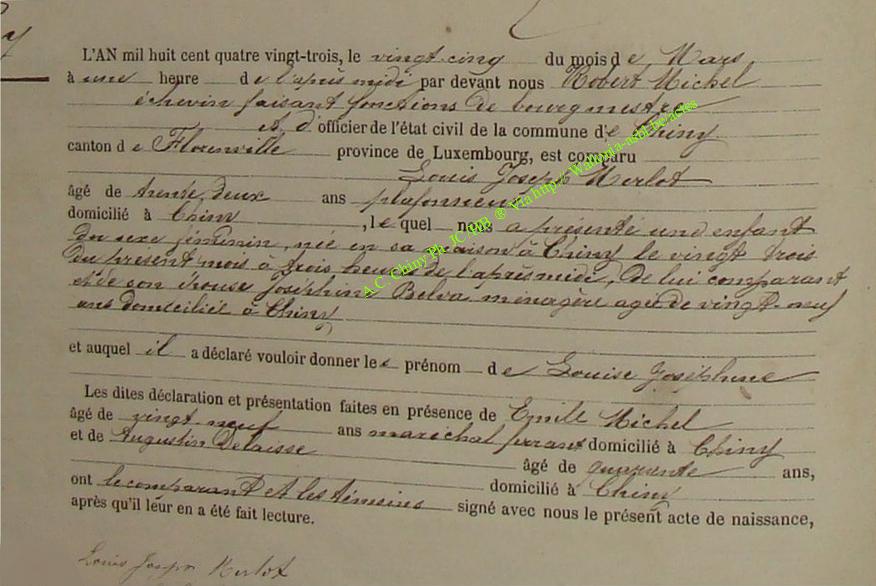 L'AN mil huit cent quatre vingt-trois, le vingt cinq du mois de Mars
à une heure de l'après midi par devant nous Robert Michel
échevin faisant fonctions de bourgmestre
et d'officier de l'état civil de la commune de Chiny
canton de Florenville province de Luxembourg, est comparu
Louis Joseph Merlot
âgé de trente deux ans plafonneur
domicilié à Chiny, lequel nous a présenté une enfant
du sexe féminin, née en sa maison à Chiny le vingt trois
du présent mois à trois heures de l'après midi, de lui comparant
et de son épouse Joséphine Belva ménagère agée de vingt-neuf
ans domiciliée à Chiny
et auquel il a déclaré vouloir donner le prénom de Louise Joséphine
Les dites déclaration et présentation faites en présence de Emile Michel
âgé de vingt neuf ans maréchal ferrant domicilié à Chiny
et de Augustin Delaisse âgé de quarante ans,
domicilié à Chiny
ont le comparant et les témoins signé avec nous le présent acte de naissance,
après qu'il leur en a été fait lecture.
Louis Joseph Merlot